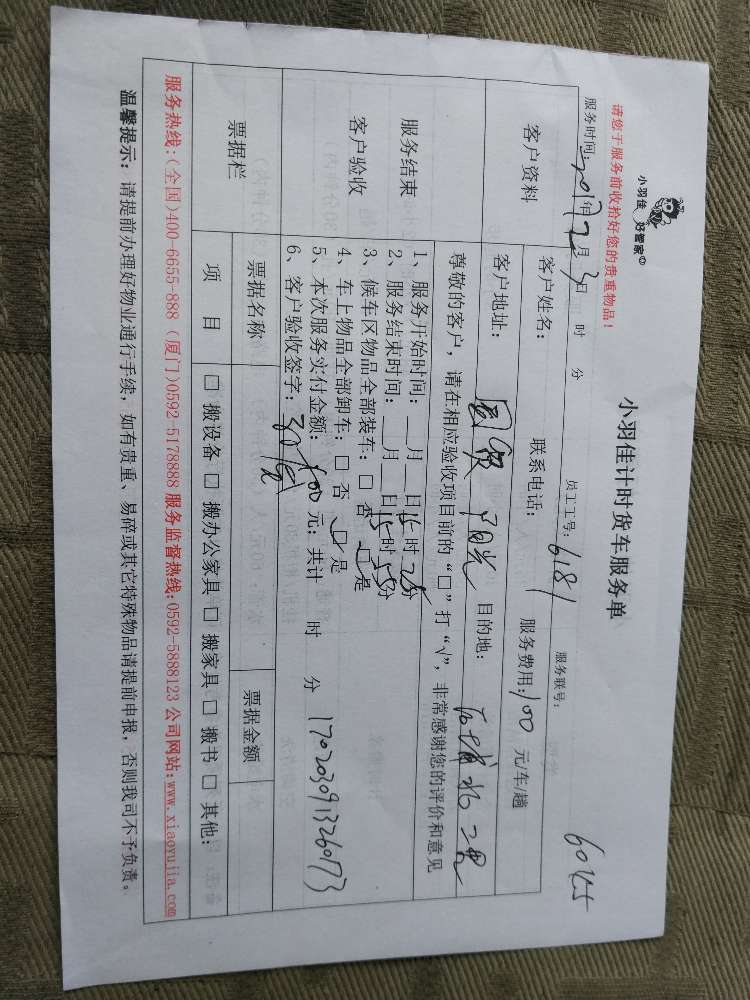 小羽佳 好管家
小羽佳计时货车服务单
60
请您于服务前收拾好您的贵重物品！
服务时间：2017年2月3日 时 分 员工工号：6181 服务联号：
客户资料
客户姓名： 联系电话： 服务费用：100元/车/趟
客户地址：国贸阳光 目的地：
尊敬的客户，请在相应验收项目前的“□”打“√”，非常感谢您的评价和意见
服务结束
客户验收
1、服务开始时间：__月__日15时25分
2、服务结束时间：__月__日15时55分
3、候车区物品全部装车：□ 否 □ 是
4、车上物品全部卸车：□ 否 □ 是
5、本次服务实付金额：100元；共计 时 分 17020309132607 3
6、客户验收签字：
票据栏
票据名称 票据金额
项 目 □ 搬设备 □ 搬办公家具 □ 搬家具 □ 搬书 □ 其他：
服务热线：(全国)400-6655-888 (厦门)0592-5178888 服务监督热线：0592-5888123 公司网站：www.xiaoyujia.com
温馨提示：请提前办理好物业通行手续，如有贵重、易碎或其它特殊物品请提前申报，否则我司不予负责。